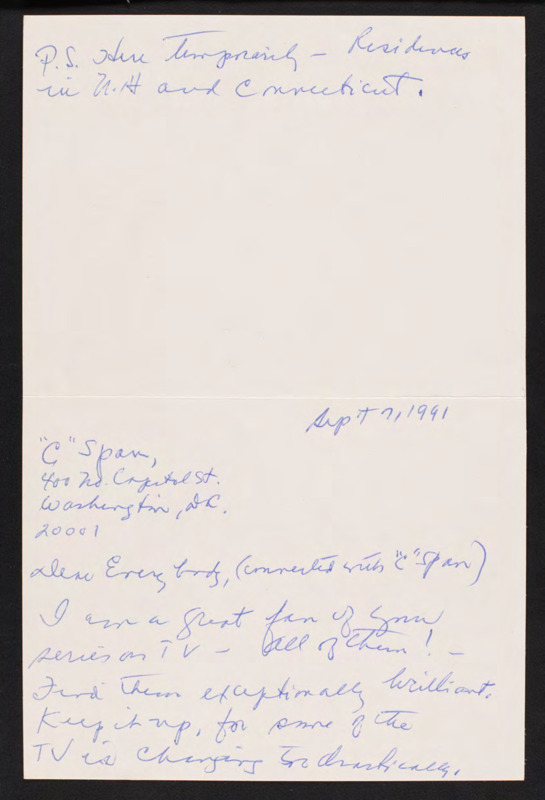 P.S. Here Temporarily – Residences
in N.H and Connecticut.
Sept 7, 1991
"C" Span,
400 No. Capitol St.
Washington, D.C.
20001
Dear Every body, (connected with "C" Span)
I am a great fan of your
series on TV – all of them! –
Find them exceptionally brilliant.
Keep it up, for some of the
TV is changing too drastically.